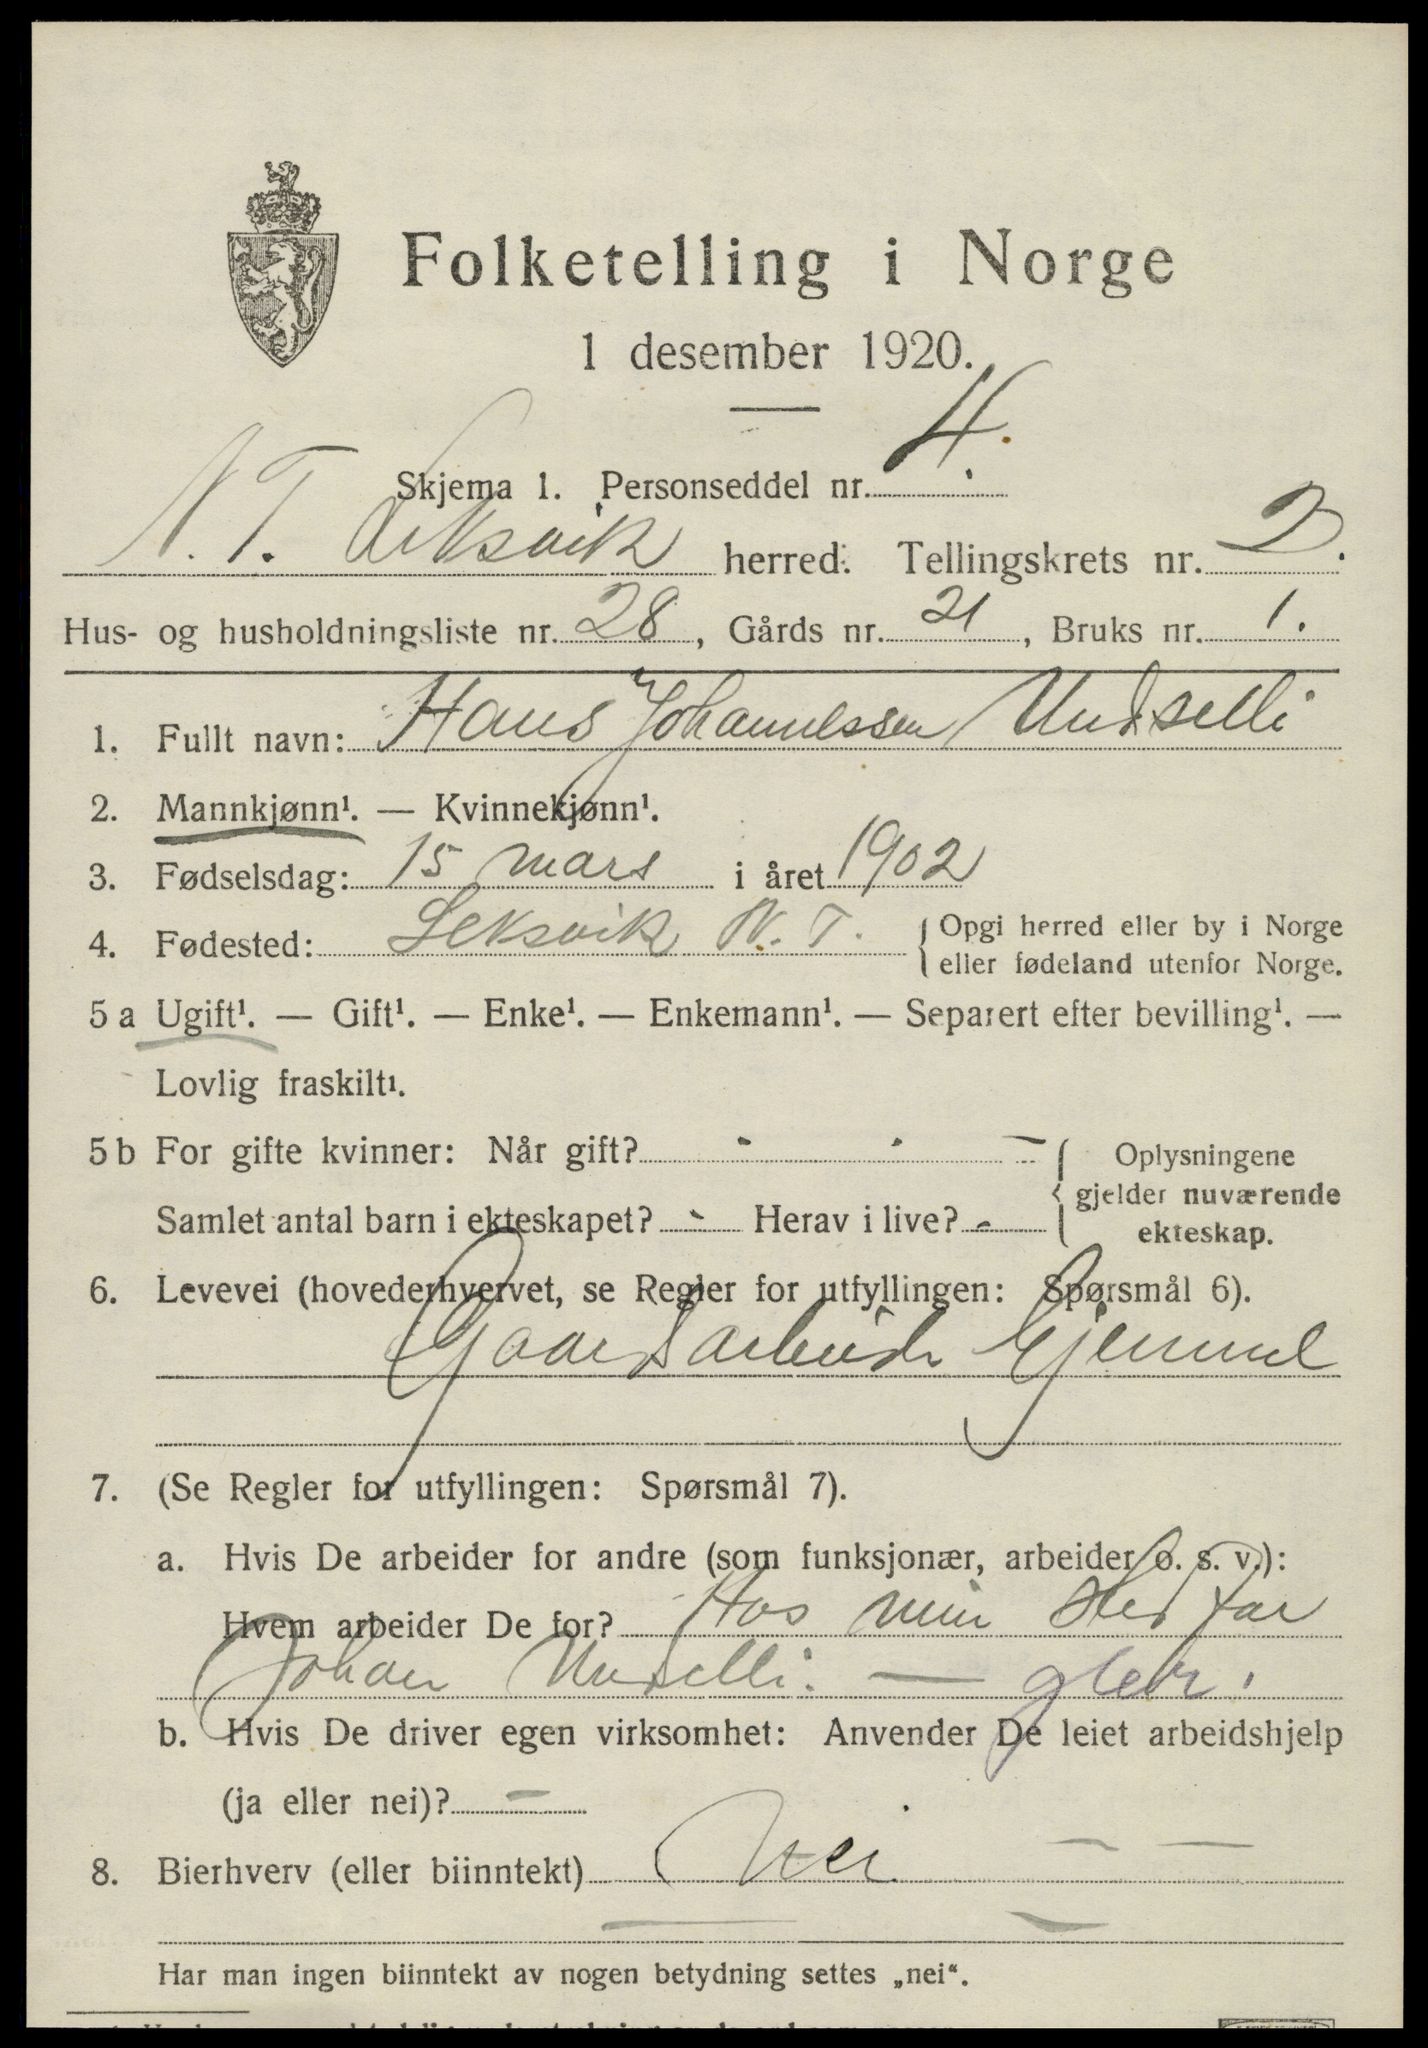 Folketelling i Norge
1 desember 1920.
Skjema 1. Personseddel nr. 4.
N. T. Leksvik herred. Tellingskrets nr. 2.
Hus- og husholdningsliste nr. 28, Gårds nr. 21, Bruks nr. 1.
1. Fullt navn: Hans Johannessen Undselli
2. Mannkjønn¹. — Kvinnekjønn¹.
3. Fødselsdag: 15 mars i året 1902
4. Fødested: Leksvik N. T. { Opgi herred eller by i Norge
eller fødeland utenfor Norge.
5 a Ugift¹. — Gift¹. — Enke¹. — Enkemann¹. — Separert efter bevilling¹. —
Lovlig fraskilt¹.
5 b For gifte kvinner: Når gift? - - — { Oplysningene
gjelder nuværende
ekteskap.
Samlet antal barn i ekteskapet? - Herav i live? -
6. Levevei (hovederhvervet, se Regler for utfyllingen: Spørsmål 6).
Gaardsarbeide Hjemme
7. (Se Regler for utfyllingen: Spørsmål 7).
a. Hvis De arbeider for andre (som funksjonær, arbeider o. s. v.):
Hvem arbeider De for? Hos min Sted far
Johan Undselli. —
b. Hvis De driver egen virksomhet: Anvender De leiet arbeidshjelp
(ja eller nei)? —
8. Bierhverv (eller biinntekt) Nei — —
— —
Har man ingen biinntekt av nogen betydning settes „nei“.